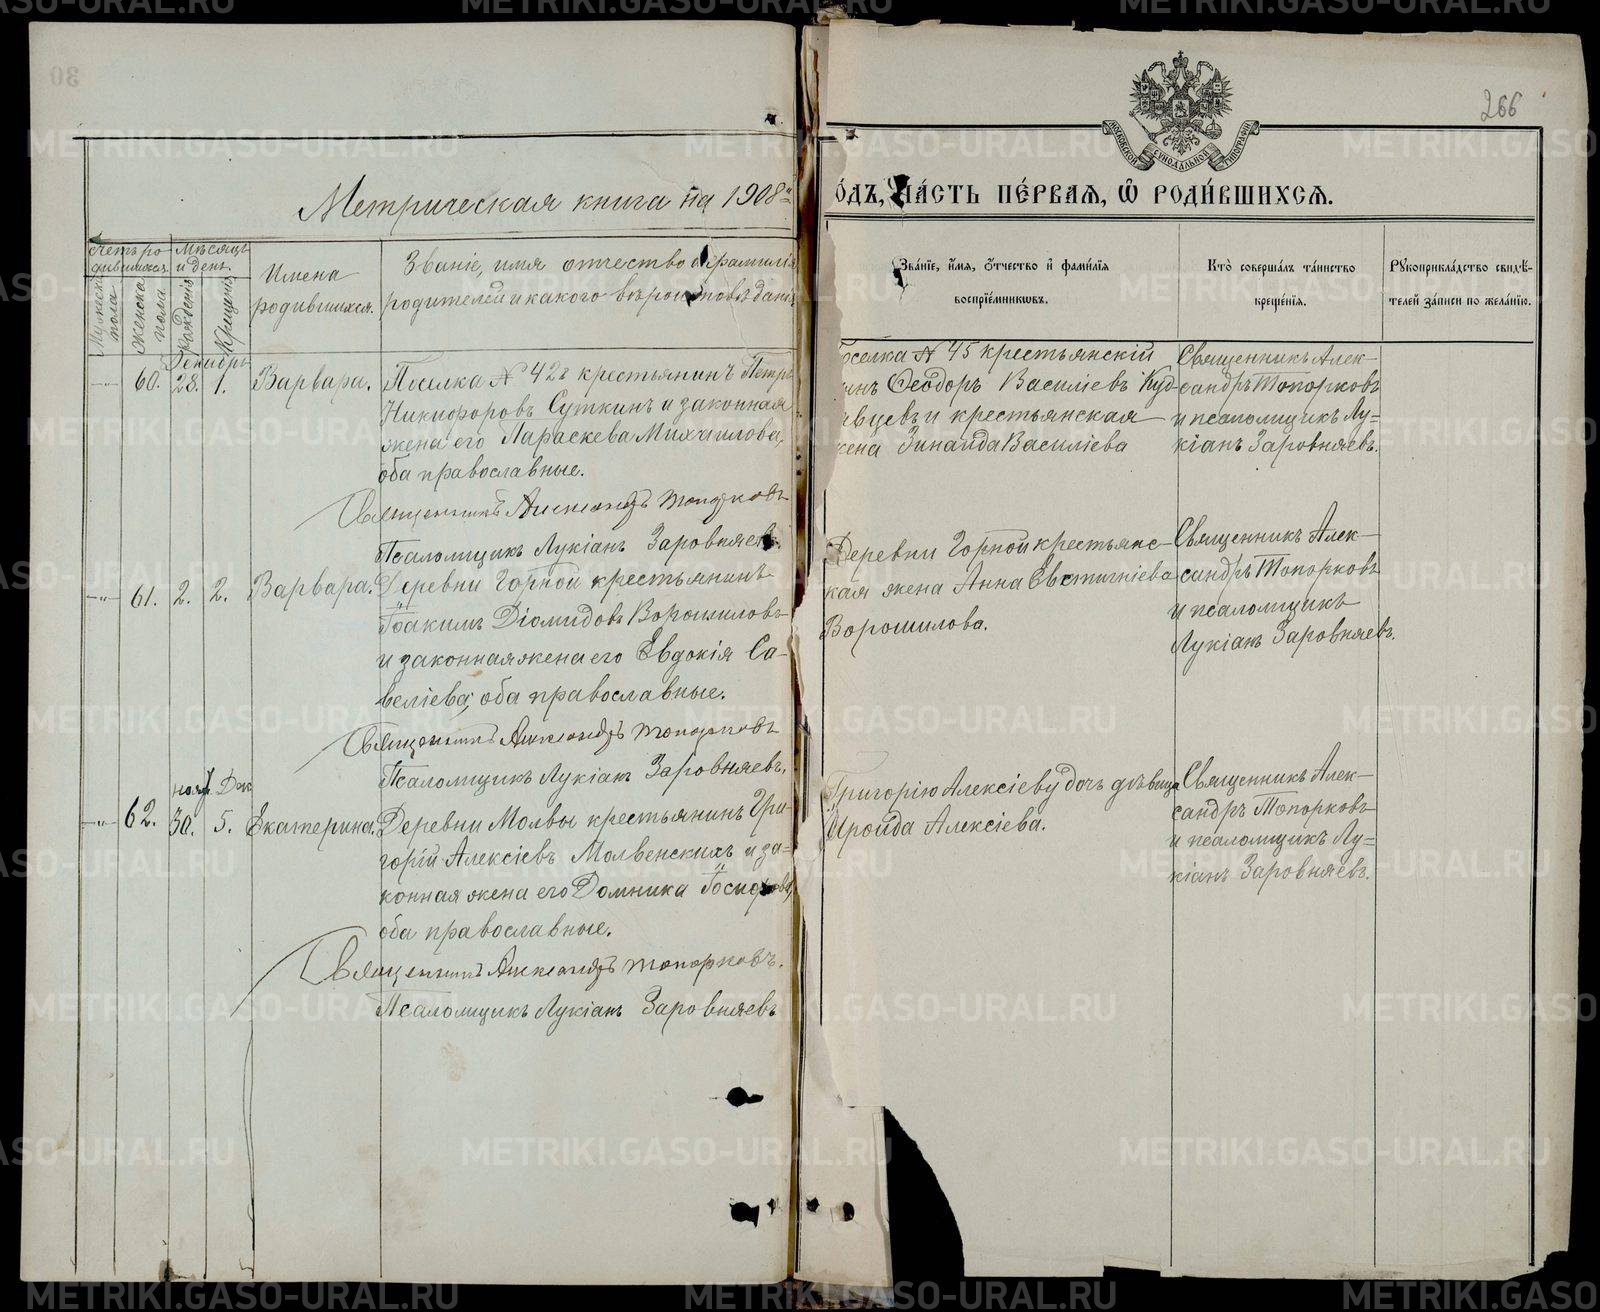 266
МОСКОВСКОЙ СѴНОДАЛЬНОЙ ТИПОГРАФІИ
Метрическая книга на 1908й
ОДЪ, ЧА́СТЬ ПЕ́РВАЯ, Ѿ РОДИ́ВШИХСЯ.
Счетъ ро-
дившихся.
Мужска
пола
Женска
пола
Мѣсяцъ
и день.
Рожденія
Крещенія
Имена
родившихся.
Званіе, имя отчество и фамилія
родителей и какого вѣроисповѣданія
Зва́нїе, и҆́мѧ, о҆́тчество и҆ фами́лїѧ
воспрїе́мникѡвъ.
Кто̀ соверша́лъ та́инство
креще́нїѧ.
Рꙋкоприкла́дство свидѣ́-
телей за́писи по жела́нїю.
Декабрь
60. 28. 1. Варвара.
Поселка № 428 крестьянинъ Петръ
Никифоровъ Суткинъ и законная
жена его Параскева Михаилова,
оба православные.
Священникъ Александръ Топорковъ
Псаломщикъ Лукіанъ Заровняевъ.
оселка № 45 крестьянскій
инъ Ѳеодоръ Василіевъ Куд-
вцевъ и крестьянская
жена Зинаида Василіева
Священникъ Алек-
сандръ Топорковъ
и псаломщикъ Лу=
кіанъ Заровняевъ.
61. 2. 2. Варвара.
Деревни Горной крестьянинъ
Іоакимъ Діомидовъ Ворошиловъ
и законная жена его Евдокія Са-
веліева; оба православные.
Священникъ Александръ Топорковъ
Псаломщикъ Лукіанъ Заровняевъ.
Деревни Горной крестьянс-
кая жена Анна Евстигніева
Ворошилова.
Священникъ Алек-
сандръ Топорковъ
и псаломщикъ
Лукіанъ Заровняевъ.
нояб. Дек
62. 30. 5. Екатерина.
Деревни Молвы крестьянинъ Гри-
горій Алексіевъ Молвенскихъ и за-
конная жена его Домника Іосифова,
оба православные.
Священникъ Александръ Топорковъ.
Псаломщикъ Лукіанъ Заровняевъ
Григорію Алексіеву дочь дѣвица
Ироида Алексіева.
Священникъ Алек-
сандръ Топорковъ
и псаломщикъ Лу=
кіанъ Заровняевъ.
METRIKI.GASO-URAL.RU